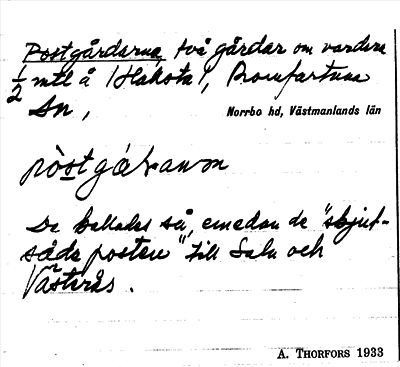 Postgårdarna, två gårdar om vardera
1/2 mtl å Haksta, Romfartuna
Sn,
Norrbo hd, Västmanlands län
De kallades så, emedan de "skjut-
sade posten" till Sala och
Västerås.
A. THORFORS 1933